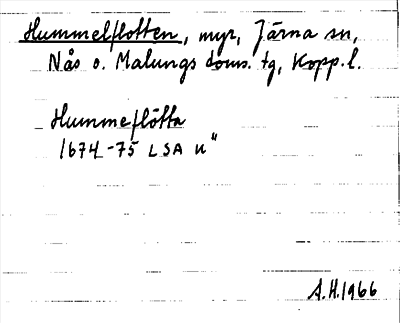 Hummelflotten, myr, Järna sn,
Nås o. Malungs doms. tg, Kopp. l.
Hummeflötta
1674-75 LSA U"
A.H. 1966